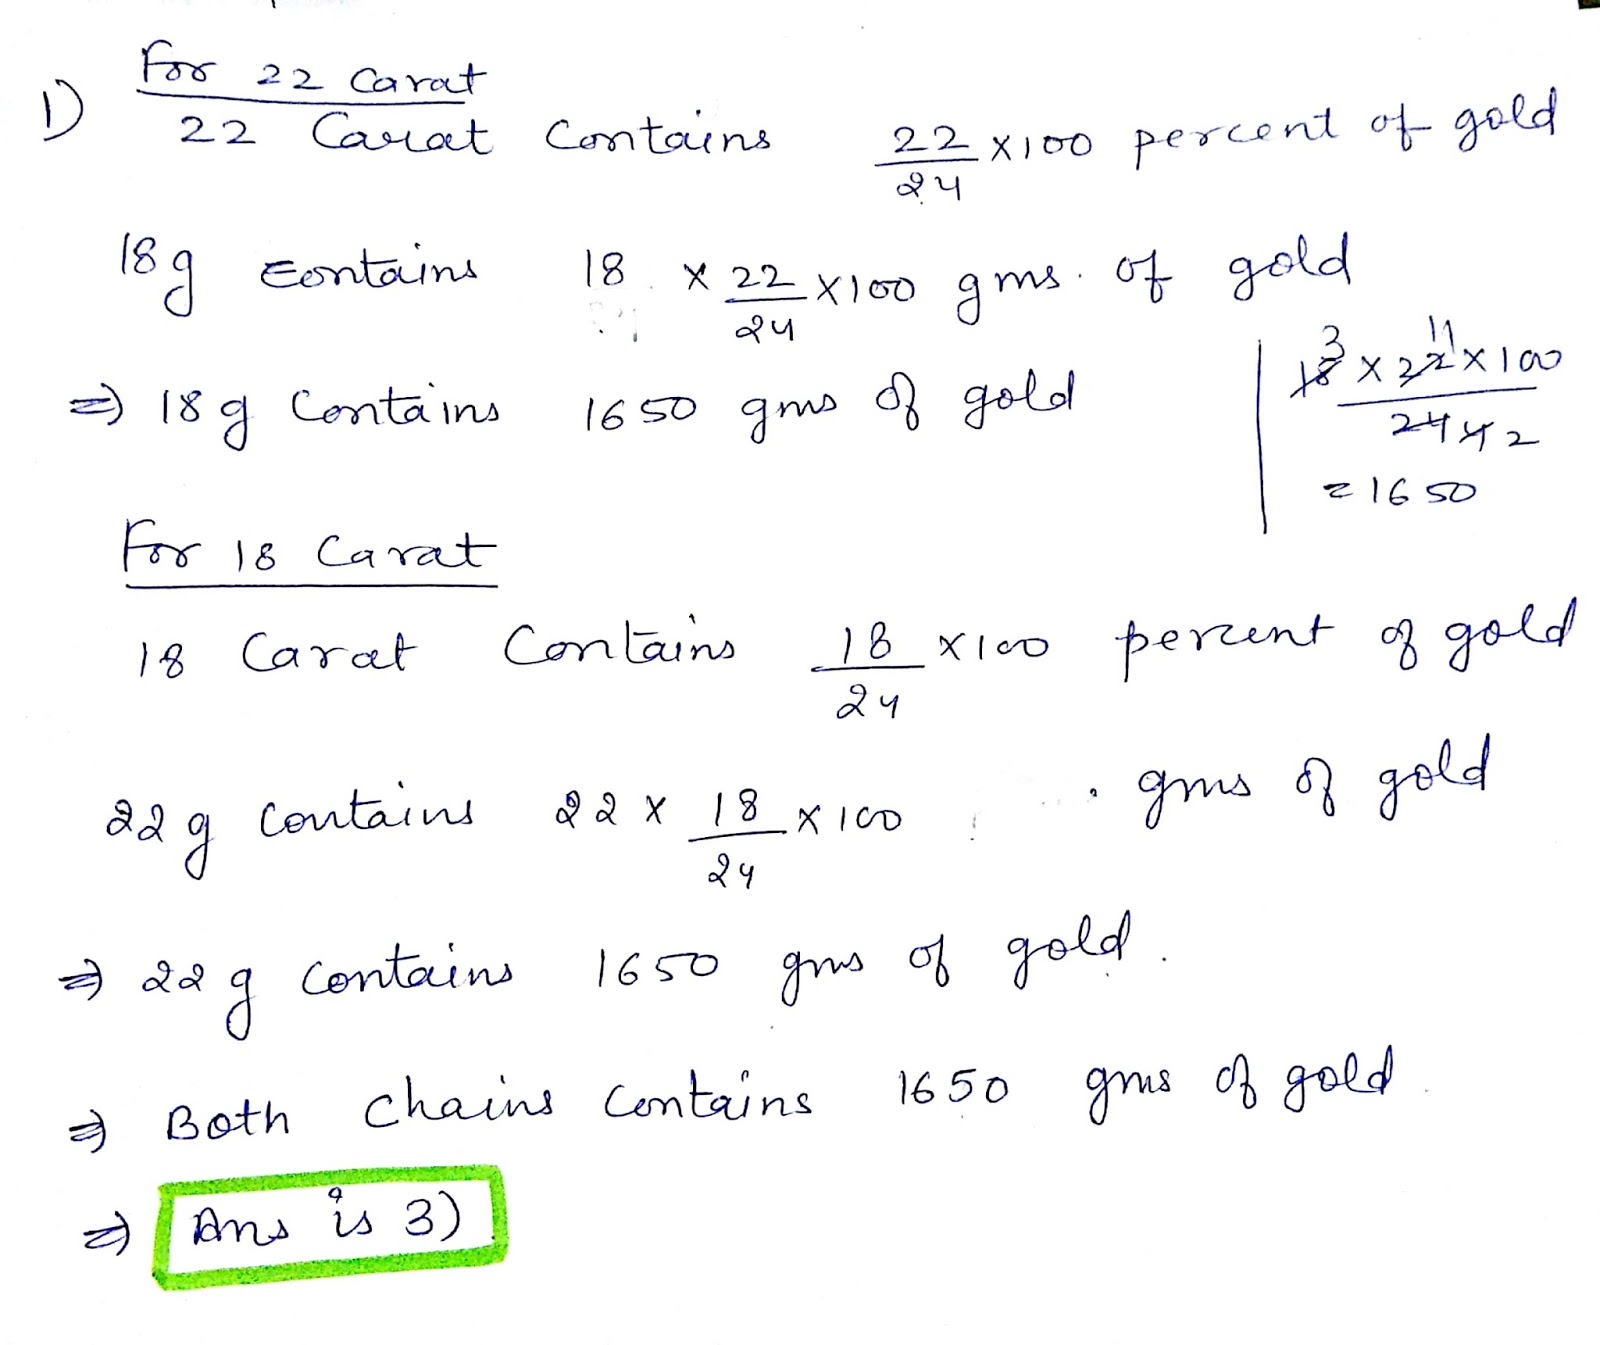 For 22 Carat
1) 22 Carat Contains 22/24 x100 percent of gold
18g Contains 18 x 22/24 x100 gms. of gold
⇒ 18g Contains 1650 gms of gold
18 3 x 22 11 x 100
24 4 2
= 1650
For 18 Carat
18 Carat Contains 18/24 x100 percent of gold
22g Contains 22 x 18/24 x 100 gms of gold
⇒ 22g Contains 1650 gms of gold.
⇒ Both Chains Contains 1650 gms of gold.
⇒ Ans is 3)